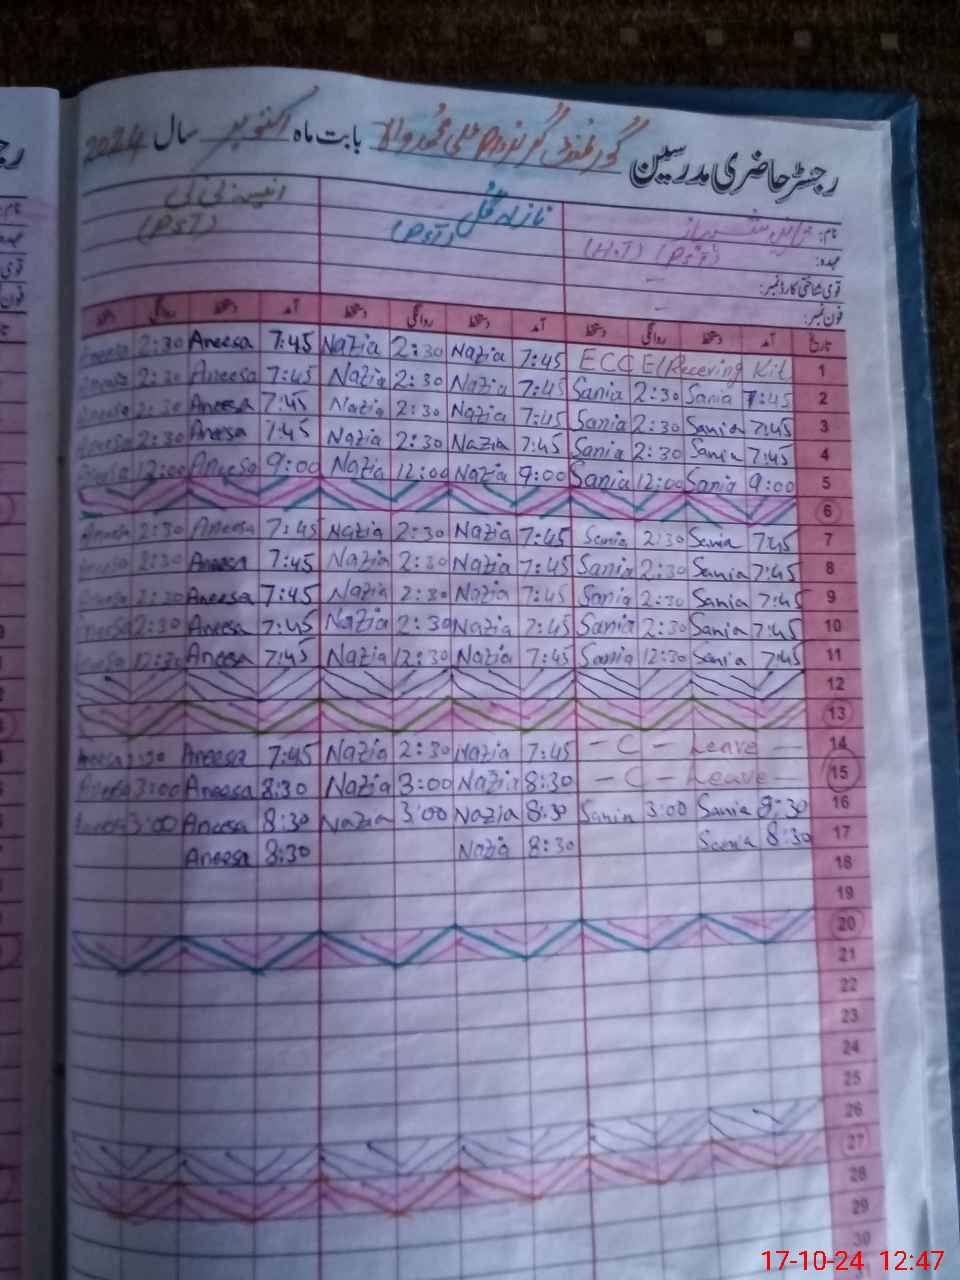 رجسٹر حاضری مدرسین گورنمنٹ گرلز بابت ماہ اکتوبر سال 2024
نام: نازیہ گل انیسہ بی بی
عہدہ: (H.T) (PST) (PST) (PST)
قومی شناختی کارڈ نمبر:
فون نمبر:
تاریخ آمد دستخط روانگی دستخط آمد دستخط روانگی دستخط آمد دستخط روانگی دستخط
Aneesa 2:30 Aneesa 7:45 Nazia 2:30 Nazia 7:45 ECCE/Receving Kit 1
Aneesa 2:30 Aneesa 7:45 Nazia 2:30 Nazia 7:45 Sania 2:30 Sania 7:45 2
Aneesa 2:30 Aneesa 7:45 Nazia 2:30 Nazia 7:45 Sania 2:30 Sania 7:45 3
Aneesa 2:30 Aneesa 7:45 Nazia 2:30 Nazia 7:45 Sania 2:30 Sania 7:45 4
Aneesa 12:00 Aneesa 9:00 Nazia 12:00 Nazia 9:00 Sania 12:00 Sania 9:00 5
6
Aneesa 2:30 Aneesa 7:45 Nazia 2:30 Nazia 7:45 Sania 2:30 Sania 7:45 7
Aneesa 2:30 Aneesa 7:45 Nazia 2:30 Nazia 7:45 Sania 2:30 Sania 7:45 8
Aneesa 2:30 Aneesa 7:45 Nazia 2:30 Nazia 7:45 Sania 2:30 Sania 7:45 9
Aneesa 2:30 Aneesa 7:45 Nazia 2:30 Nazia 7:45 Sania 2:30 Sania 7:45 10
Aneesa 12:30 Aneesa 7:45 Nazia 12:30 Nazia 7:45 Sania 12:30 Sania 7:45 11
12
13
Aneesa 2:30 Aneesa 7:45 Nazia 2:30 Nazia 7:45 - C - Leave - 14
Aneesa 3:00 Aneesa 8:30 Nazia 3:00 Nazia 8:30 - C - Leave - 15
Aneesa 3:00 Aneesa 8:30 Nazia 3:00 Nazia 8:30 Sania 3:00 Sania 8:30 16
Aneesa 8:30 Nazia 8:30 Sania 8:30 17
18
19
20
21
22
23
24
25
26
27
28
29
30
17-10-24 12:47